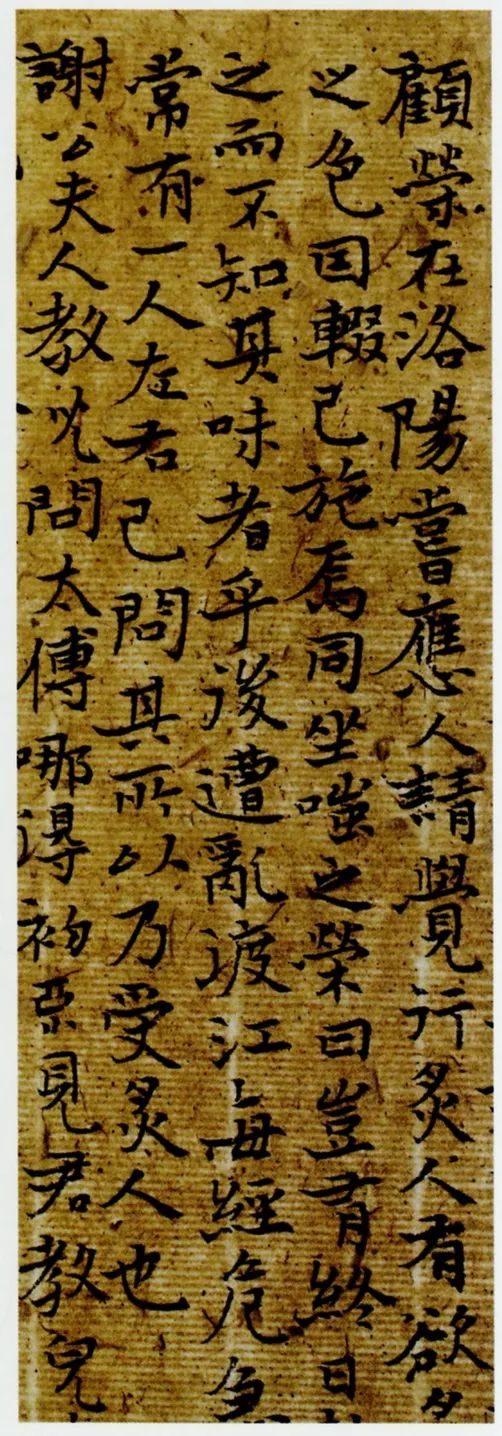 顧榮在洛陽嘗應人請覺行炙人有欲
之色因輟己施焉同坐嗤之榮曰豈有終日
之而不知其味者乎後遭亂渡江每經危急
常有一人左右己問其所以乃受炙人也
謝公夫人教兒問太傅哪得初不見君教兒